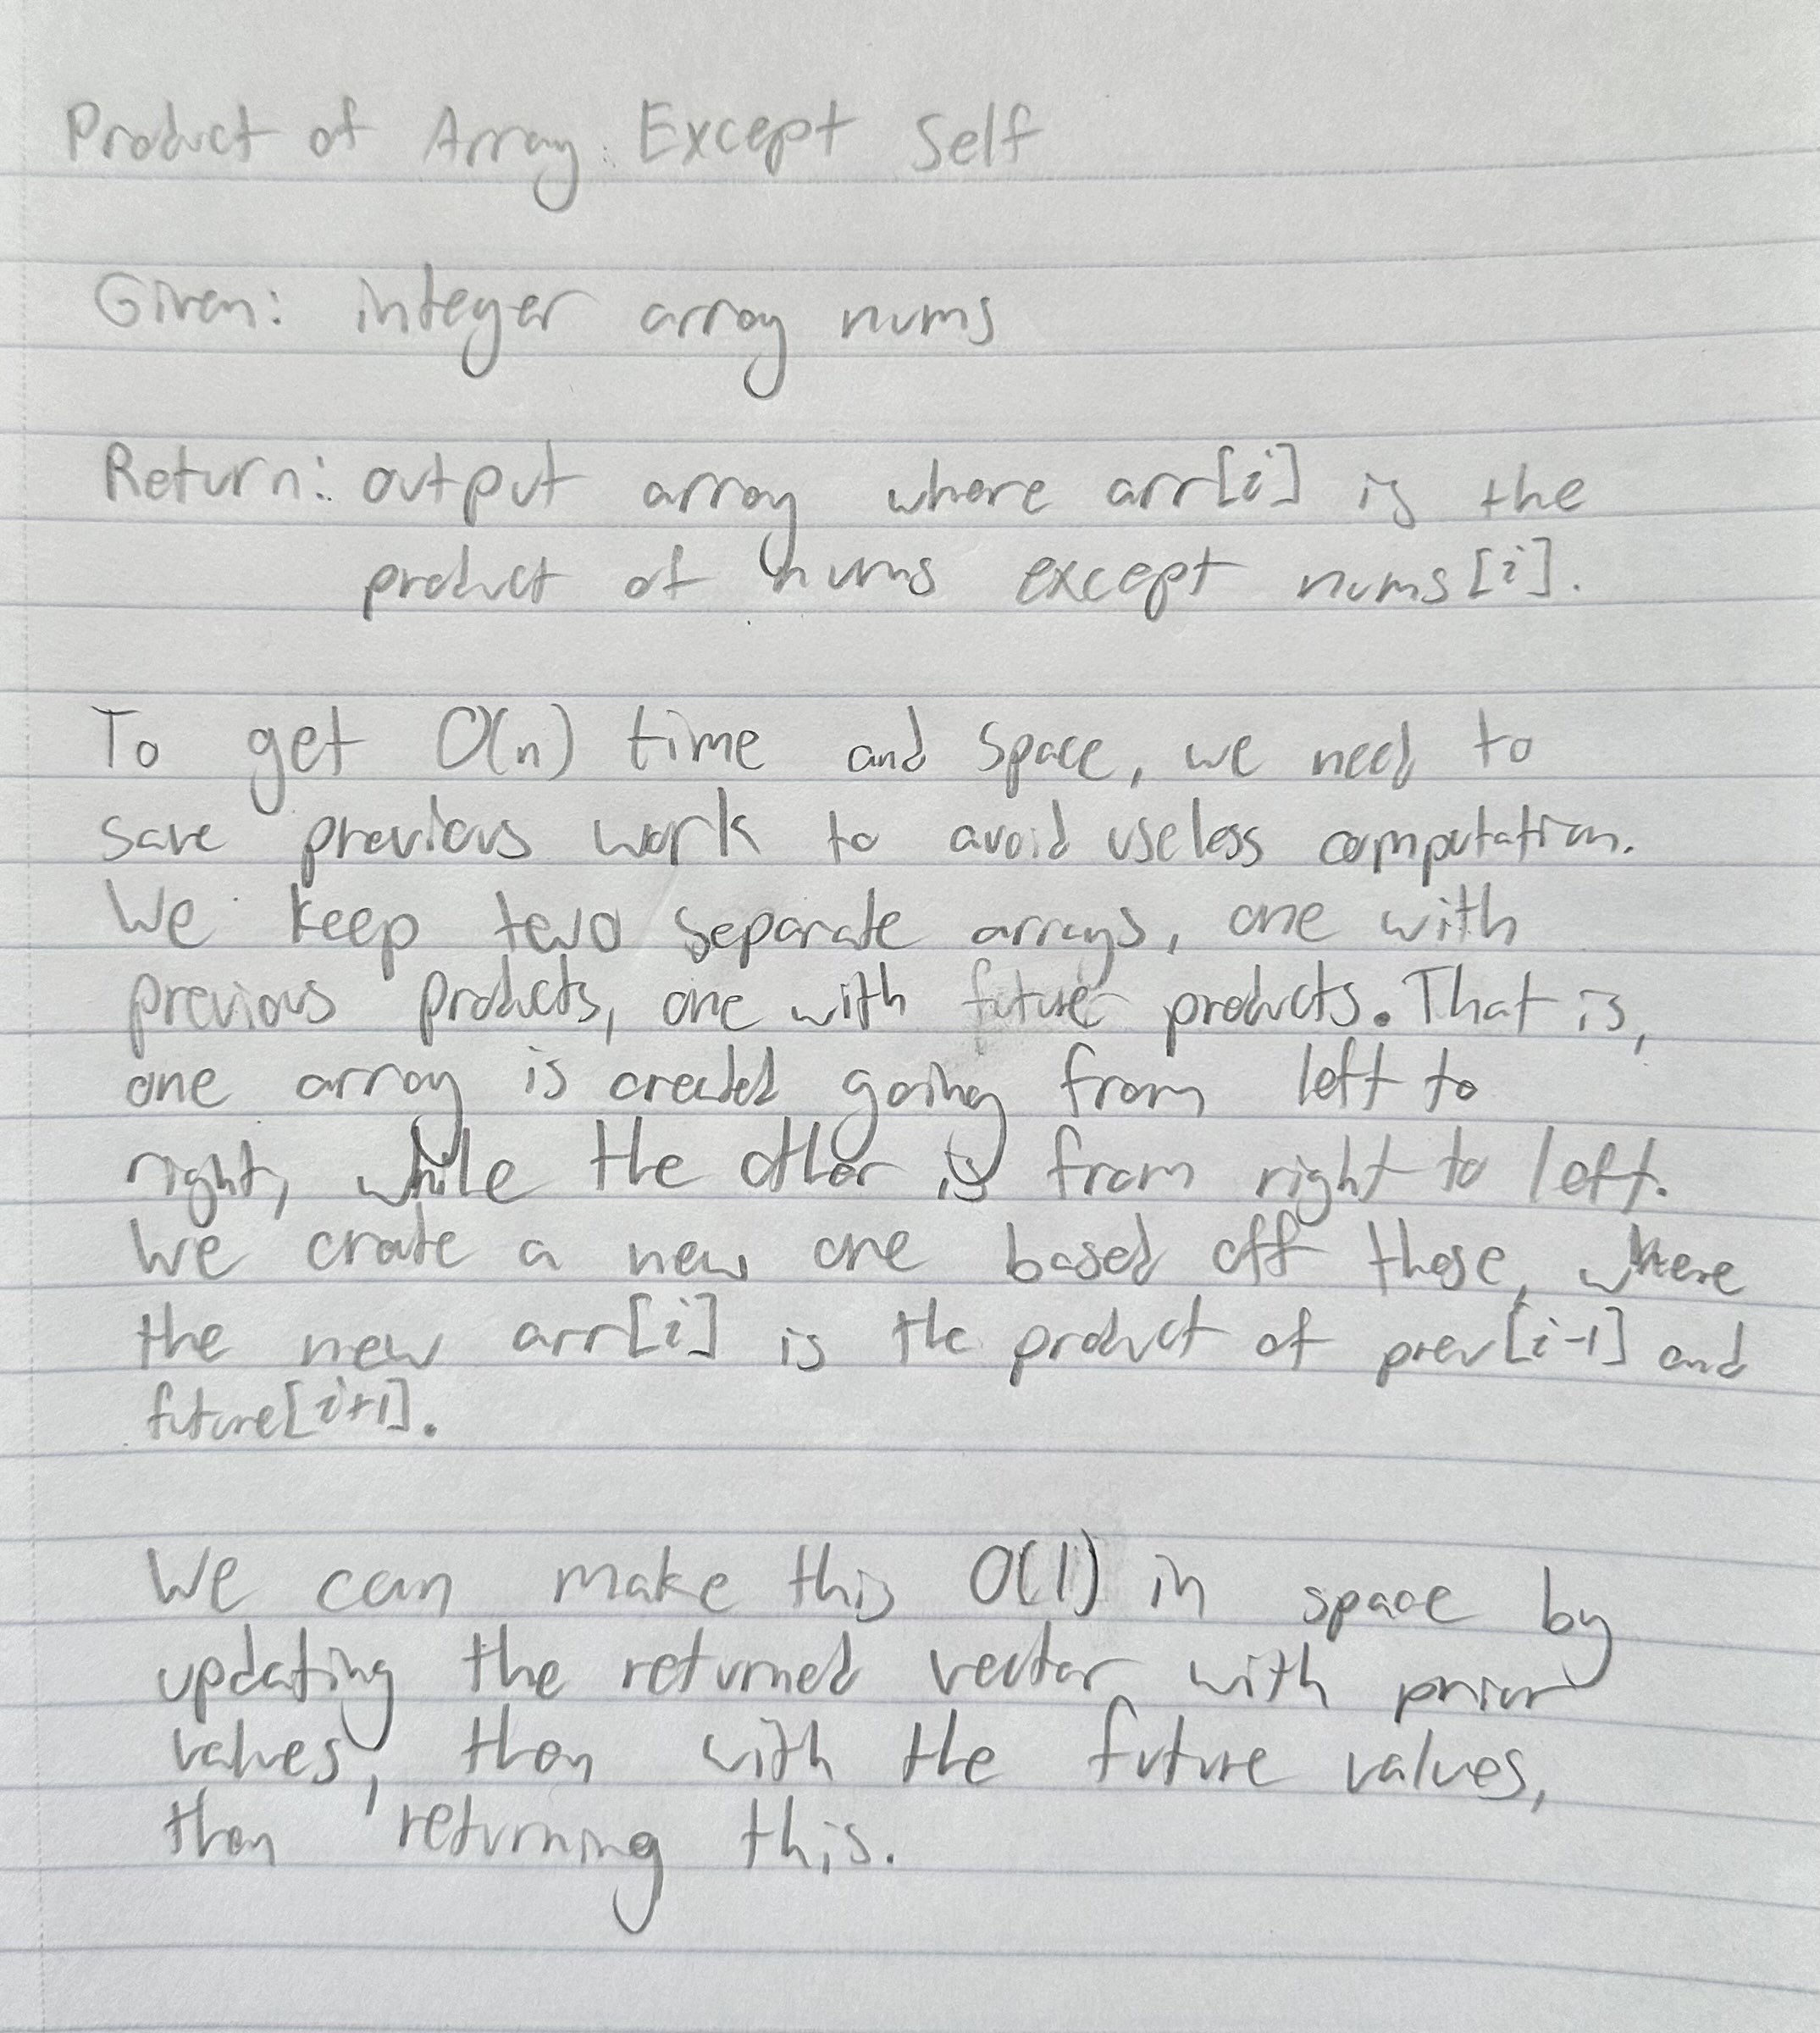 Product of Array Except Self
Given: integer array nums
Return: output array where arr[i] is the
product of nums except nums[i].
To get O(n) time and space, we need to
save previous work to avoid useless computation.
We keep two separate arrays, one with
previous products, one with future products. That is,
one array is created going from left to
right, while the other is from right to left.
We create a new one based off these, where
the new arr[i] is the product of prev[i-1] and
future[i+1].
We can make this O(1) in space by
updating the returned vector with prior
values, then with the future values,
then returning this.